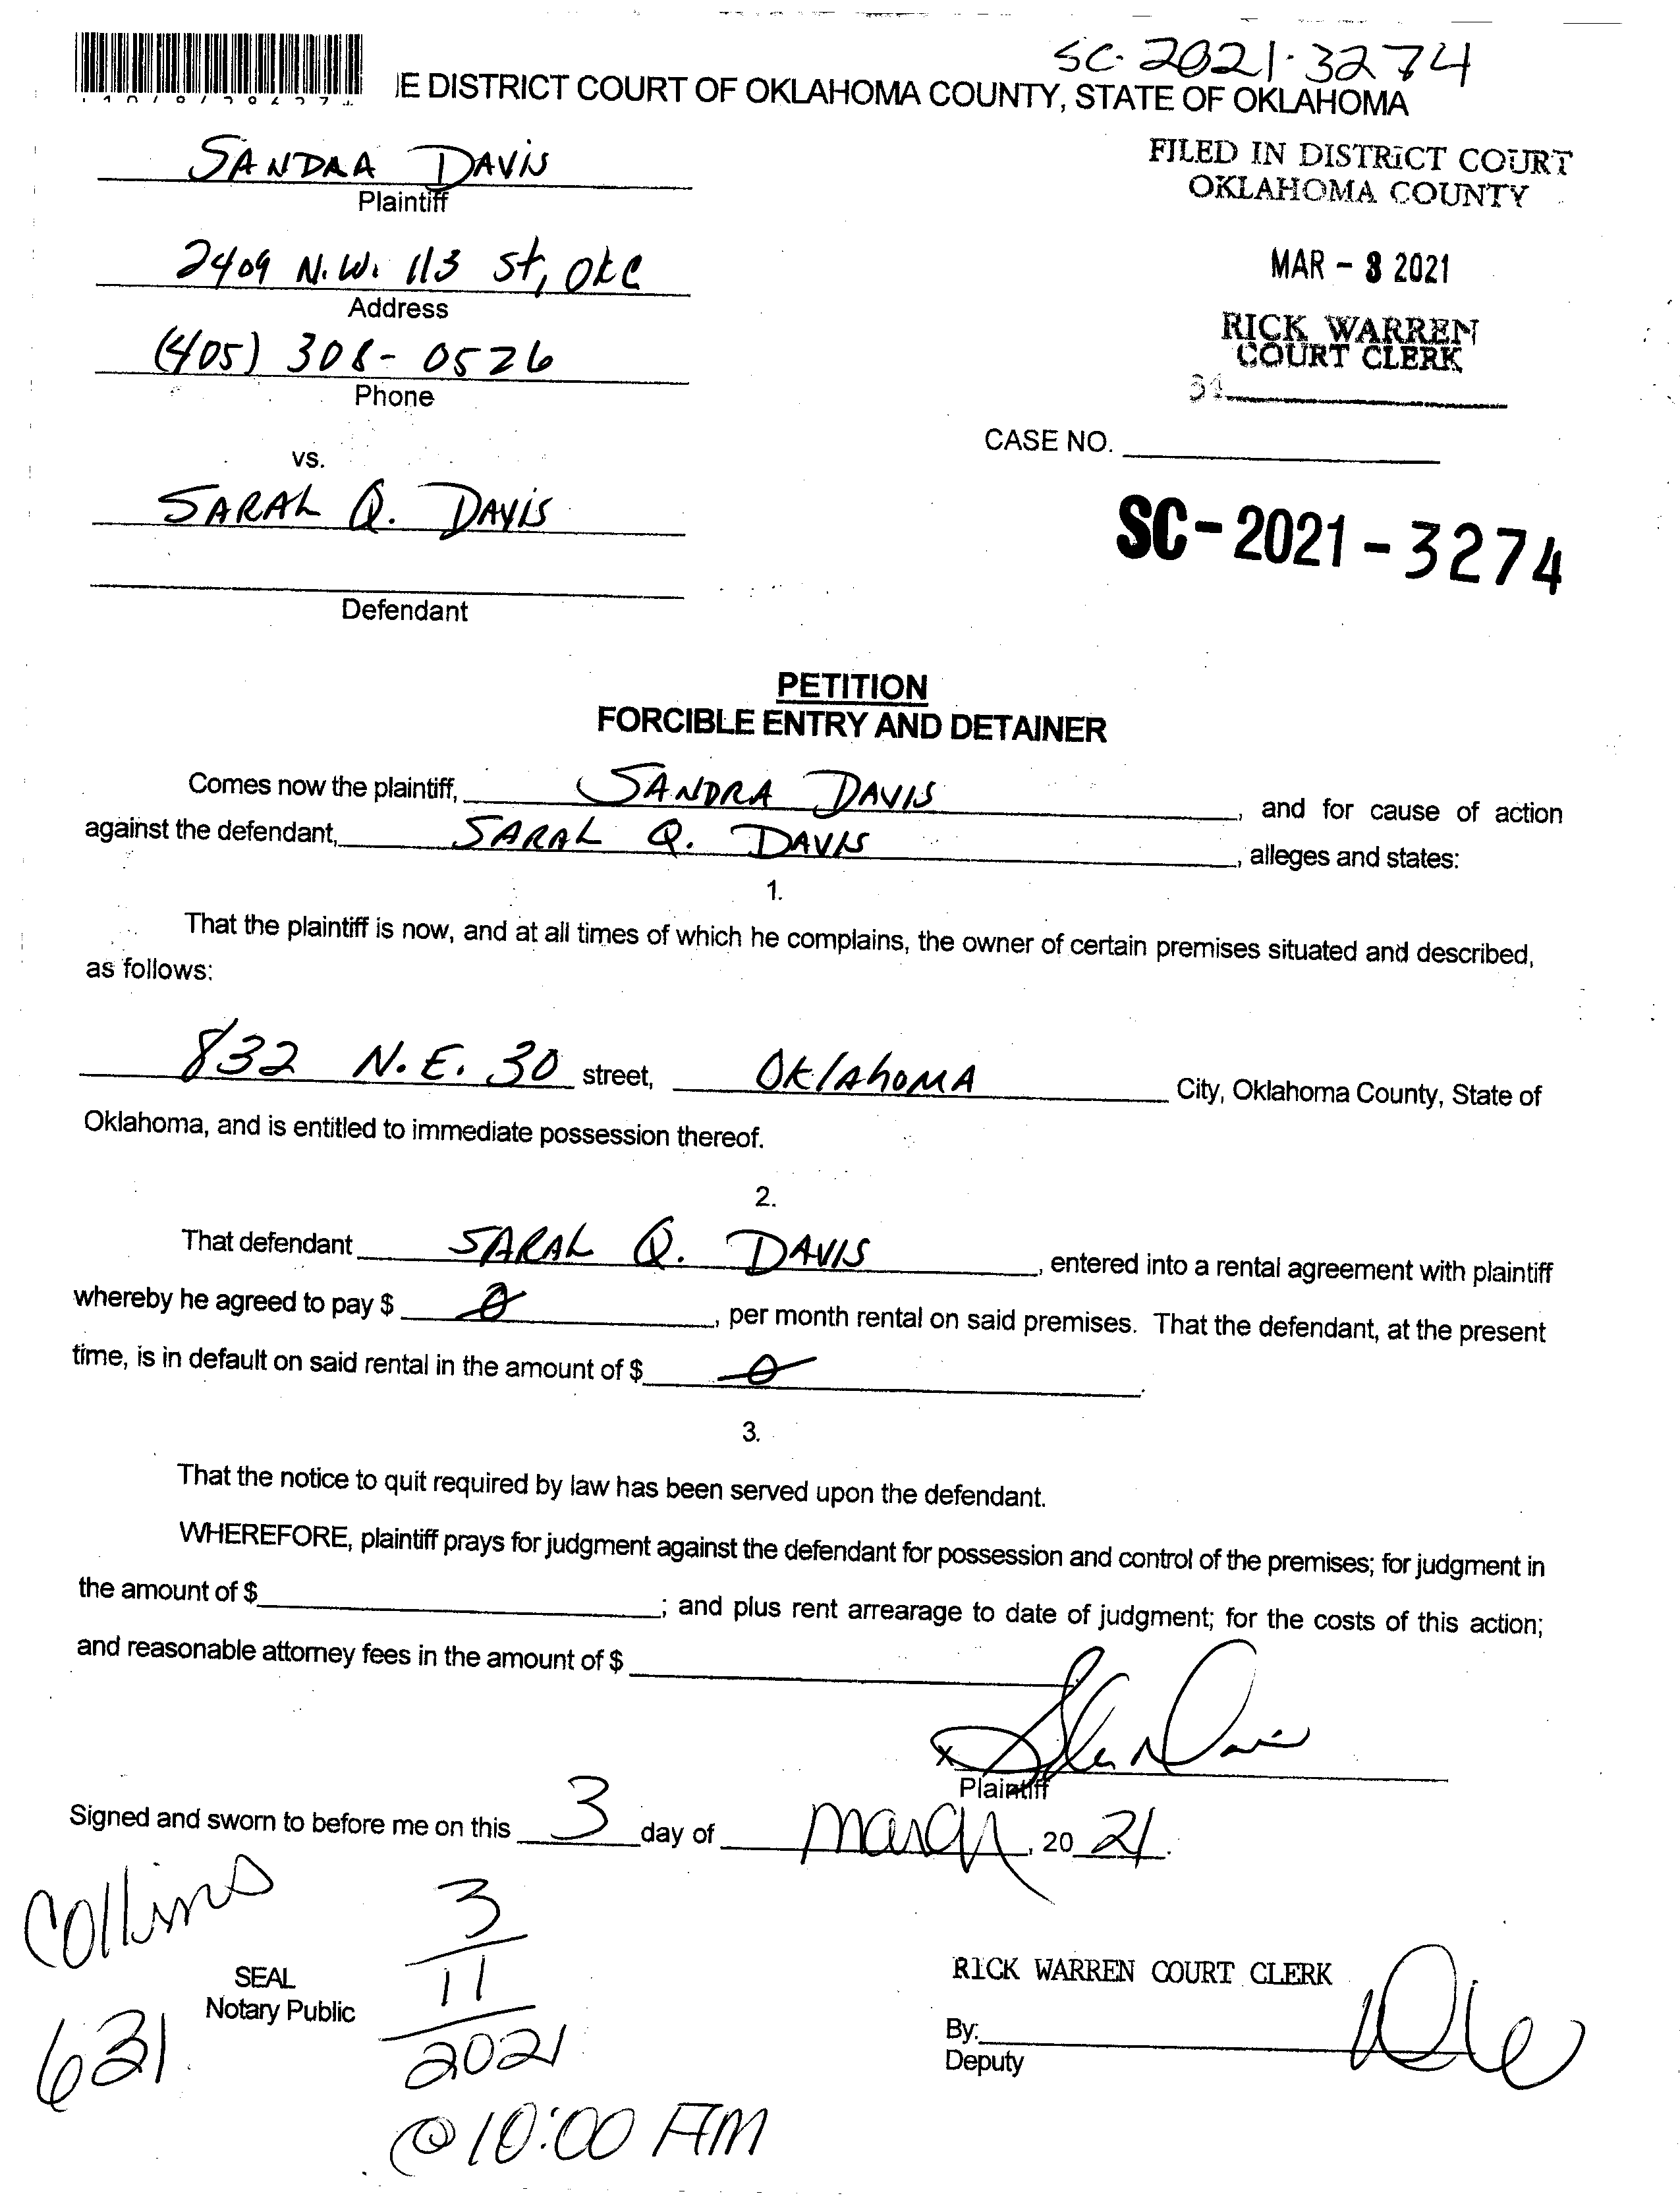 SC-2021-3274
IE DISTRICT COURT OF OKLAHOMA COUNTY, STATE OF OKLAHOMA
SANDRA DAVIS
Plaintiff
FILED IN DISTRICT COURT
OKLAHOMA COUNTY
2409 N.W. 113 St, OKC
Address
MAR - 3 2021
(405) 308-0526
Phone
RICK WARREN
COURT CLERK
34
vs.
CASE NO.
SARAH Q. DAVIS
SC-2021-3274
Defendant
PETITION
FORCIBLE ENTRY AND DETAINER
Comes now the plaintiff, SANDRA DAVIS, and for cause of action
against the defendant, SARAH Q. DAVIS, alleges and states:
1.
That the plaintiff is now, and at all times of which he complains, the owner of certain premises situated and described,
as follows:
832 N.E. 30 street, OKlAhOMA City, Oklahoma County, State of
Oklahoma, and is entitled to immediate possession thereof.
2.
That defendant SARAH Q. DAVIS, entered into a rental agreement with plaintiff
whereby he agreed to pay $ 0, per month rental on said premises. That the defendant, at the present
time, is in default on said rental in the amount of $ 0.
3.
That the notice to quit required by law has been served upon the defendant.
WHEREFORE, plaintiff prays for judgment against the defendant for possession and control of the premises; for judgment in
the amount of $; and plus rent arrearage to date of judgment; for the costs of this action;
and reasonable attorney fees in the amount of $
X
Plaintiff
Signed and sworn to before me on this 3 day of March, 20 21.
Collins
3
11
2021
@ 10:00 AM
SEAL
Notary Public
631
RICK WARREN COURT CLERK
By:
Deputy